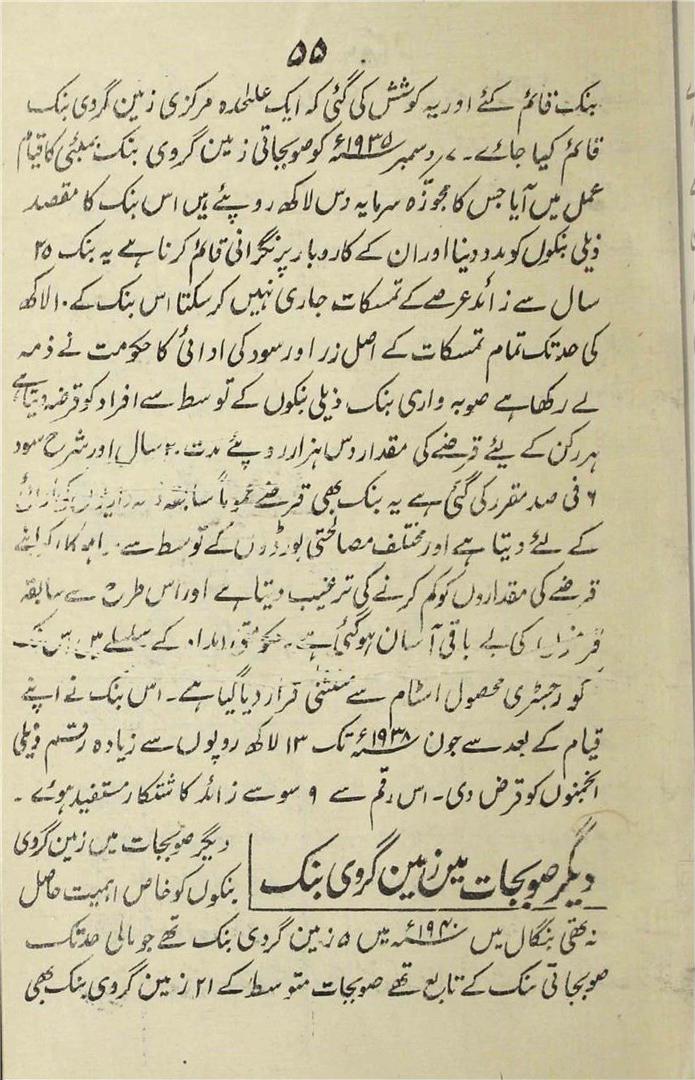 ۵۵
بنک قائم کئے اور یہ کوشش کی گئی کہ ایک علٰحدہ مرکزی زمین گروی بنک
قائم کیا جائے۔ ۷؍ دسمبر ۱۹۳۵ء کو صوبجاتی زمین گروی بنک بمبئی کا قیام
عمل میں آیا جس کا مجوّزہ سرمایہ دس لاکھ روپئے ہیں اس بنک کا مقصد
ذیلی بنکوں کو مدد دینا اور ان کے کاروبار پر نگرانی قائم کرنا ہے یہ بنک ۲۵
سال سے زائد عرصے کے تمسکات جاری نہیں کر سکتا اس بنک کے ۱۰ لاکھ
کی حد تک تمام تمسکات کے اصل زر اور سود کی ادائی کا حکومت نے ذمہ
لے رکھا ہے صوبہ واری بنک ذیلی بنکوں کے توسط سے افراد کو قرضہ دیتا ہے
ہر رکن کے لیئے قرضے کی مقدار دس ہزار روپئے مدت ۲۰ سال اور شرح سود
۶ فی صد مقرر کی گئی ہے یہ بنک بھی قرضے عموماً سابقہ کی ادائی
کے لئے دیتا ہے اور مختلف مصالحتی بورڈوں کے توسط سے
قرضے کی مقداروں کو کم کرنے کی ترغیب دیتا ہے اور اس طرح سے سابقہ
قرضوں کی بے باقی آسان ہو گئی ہے۔ حکومتی امداد کے سلسلے میں اس بنک
کو رجسٹری محصول اسٹام سے مستثنیٰ قرار دیا گیا ہے۔ اس بنک نے اپنے
قیام کے بعد سے جون ۱۹۳۸ء تک ۱۳ لاکھ روپوں سے زیادہ رقم ذیلی
انجمنوں کو قرض دی۔ اس رقم سے ۹ سو سے زائد کاشتکار مستفید ہوئے۔
دیگر صوبجات میں زمین گروی بنک
دیگر صوبجات میں زمین گروی
بنکوں کو خاص اہمیت حاصل
نہ تھی بنگال میں ۱۹۴۰ء میں ۵ زمین گروی بنک تھے جو مالی حد تک
صوبجاتی بنک کے تابع تھے صوبجات متوسط کے ۲۱ زمین گروی بنک بھی